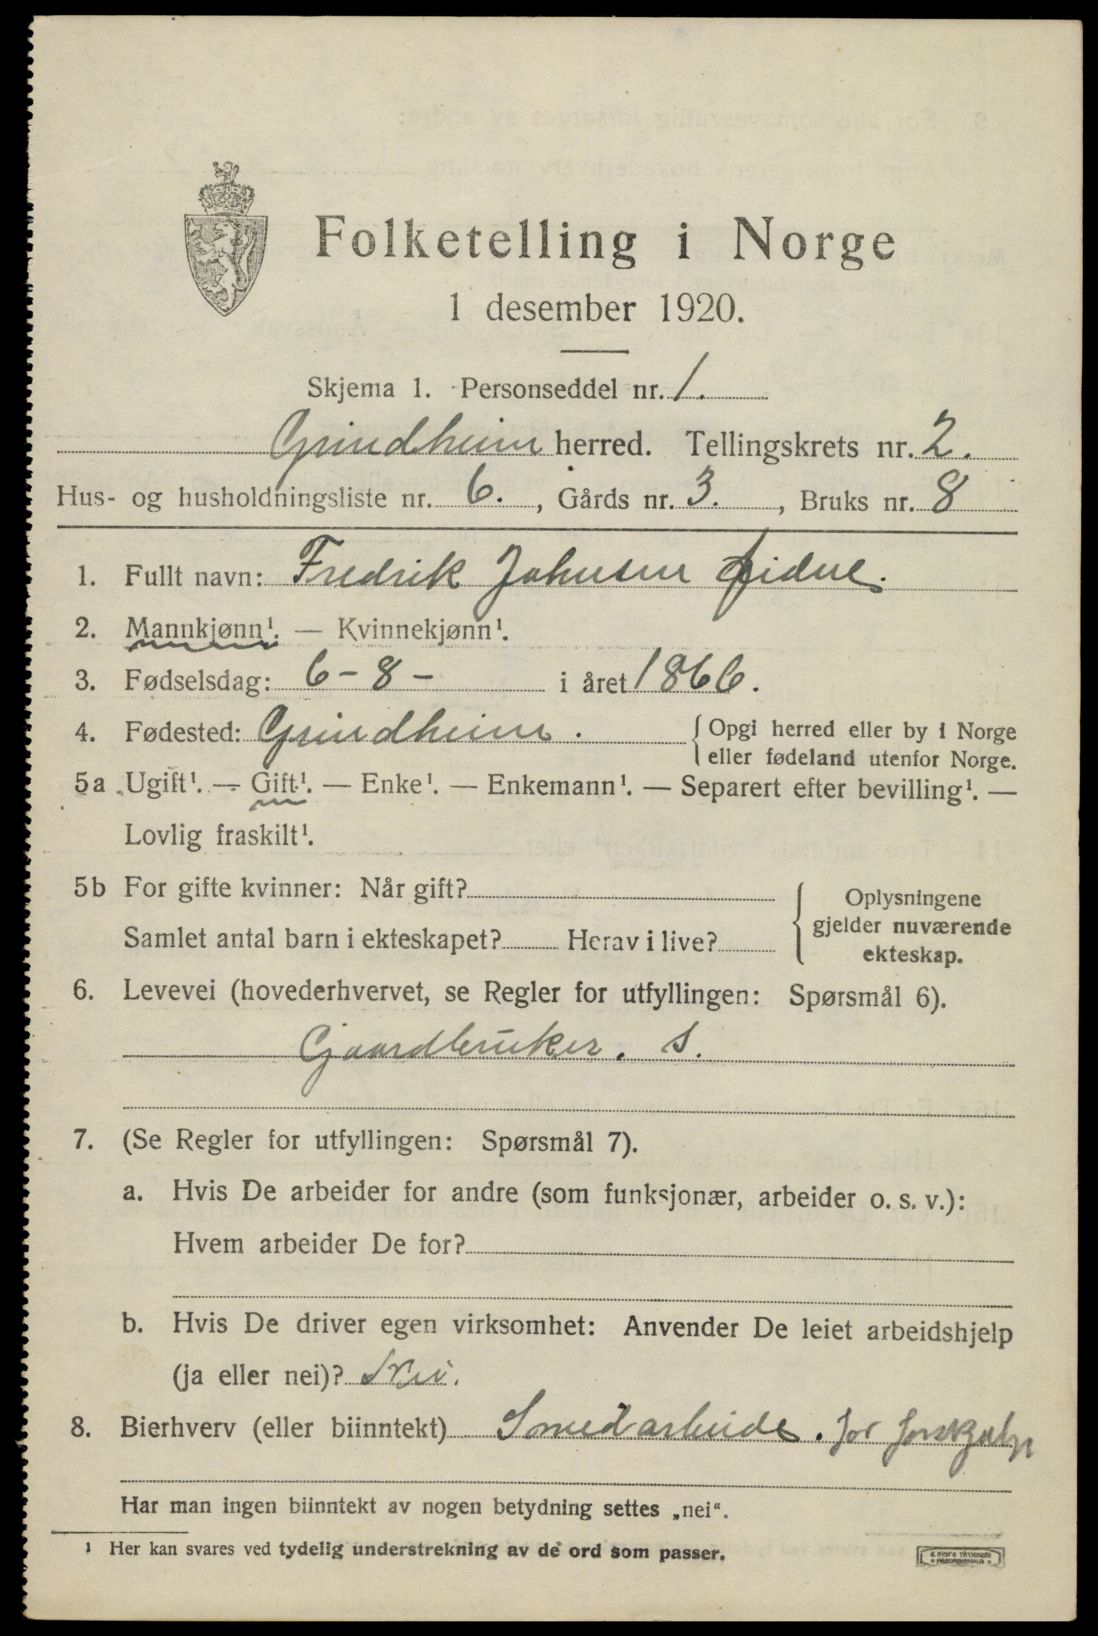 Folketelling i Norge
1 desember 1920.
Skjema 1. Personseddel nr. 1.
Grindheim herred. Tellingskrets nr. 2.
Hus- og husholdningsliste nr. 6., Gårds nr. 3., Bruks nr. 8
1. Fullt navn: Fredrik Johnsen Øidne.
2. Mannkjønn¹. — Kvinnekjønn¹.
3. Fødselsdag: 6-8- i året 1866.
4. Fødested: Grindheim. { Opgi herred eller by i Norge
eller fødeland utenfor Norge.
5a Ugift¹. — Gift¹. — Enke¹. — Enkemann¹. — Separert efter bevilling¹. —
Lovlig fraskilt¹.
5b For gifte kvinner: Når gift?
Samlet antal barn i ekteskapet? Herav i live?
{ Oplysningene
gjelder nuværende
ekteskap.
6. Levevei (hovederhvervet, se Regler for utfyllingen: Spørsmål 6).
Gaardbruker. S.
7. (Se Regler for utfyllingen: Spørsmål 7).
a. Hvis De arbeider for andre (som funksjonær, arbeider o. s. v.):
Hvem arbeider De for?
b. Hvis De driver egen virksomhet: Anvender De leiet arbeidshjelp
(ja eller nei)? Nei.
8. Bierhverv (eller biinntekt) Smedarbeide. for
Har man ingen biinntekt av nogen betydning settes „nei“.
¹ Her kan svares ved tydelig understrekning av de ord som passer.